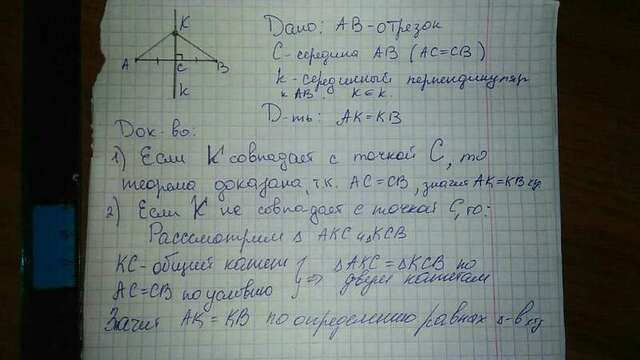 K
A
C
B
k
Дано: AB-отрезок
C-середина AB (AC=CB)
k-серединный перпендикуляр
к AB. K∈k.
Д-ть: AK=KB
Док-во:
1) Если K совпадает с точкой C, то
теорема доказана, т.к. AC=CB, значит AK=KB чтд
2) Если K не совпадает с точкой C, то:
Рассмотрим Δ AKC и ΔKCB
KC-общий катет } ΔAKC=ΔKCB по
AC=CB по условию } => двум катетам
Значит AK=KB по определению равных Δ-в чтд